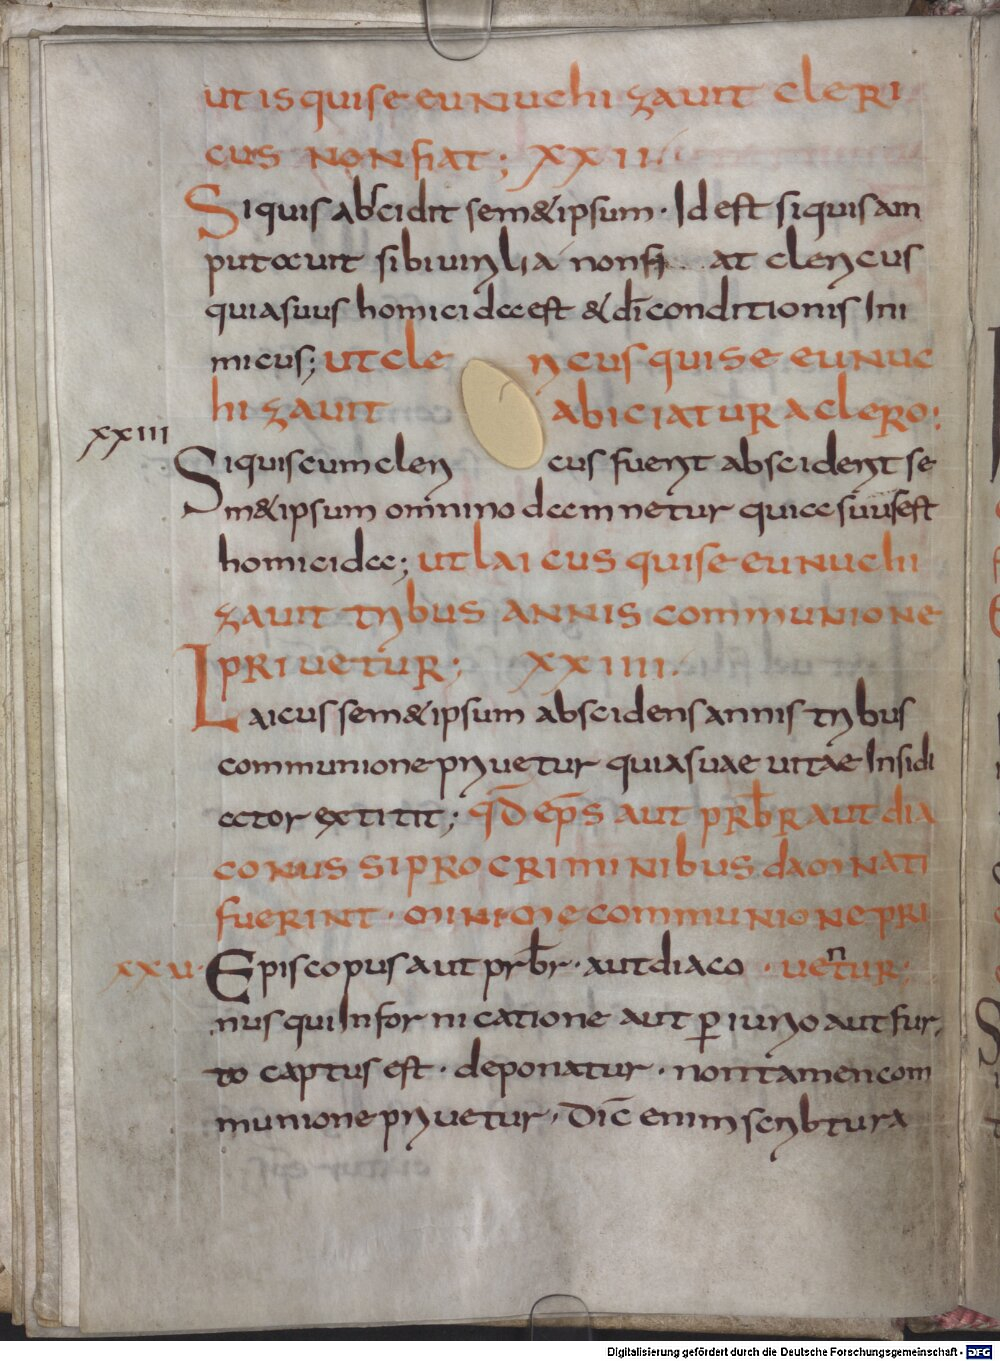 ut is qui se eunuchizauit cleri
cus non fiat; xxii.
Si quis abscidit sem&ipsum. Id est si quis am
putauit sibi uirilia non fi at clericus
quia suus homicida est & di conditionis Ini
micus; ut cle ricus qui se eunuc
hizauit abiciatur a clero;
xxiii
Si quis cum cleri cus fuerit absciderit se
m&ipsum omnino damnetur quia suus est
homicida; ut laicus qui se eunuchi
zauit tribus annis communione
priuetur; xxiiii.
Laicus sem&ipsum abscidens annis tribus
communione priuetur quia suae uitae Insidi
ator extitit; qd eps aut prbr aut dia
conus si pro criminibus damnati
fuerint. minime communione pri
xxu. Episcopus aut prbr. aut diaco . uentur;
nus qui In fornicatione aut periurio aut fur
to captus est. deponatur. non tamen com
munione priuetur, dic enim scribtura
Digitalisierung gefördert durch die Deutsche Forschungsgemeinschaft - DFG